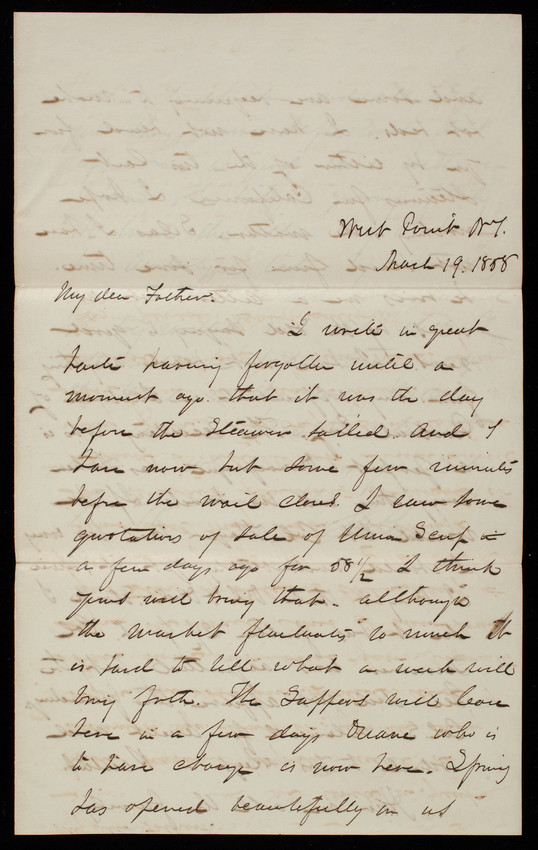 West Point N.Y.
March 19. 1858
My dear Father.
I write in great
haste having forgotten until a
moment ago that it was the day
before the Steamer sailed. And I
have now but some few minutes
before the mail closes. I saw some
quotations of sale of Scrip
a few days ago for 58 1/2 I think
yours will bring that. allthough
the market fluctuates so much it
is hard to tell what a week will
bring forth. The Sappers will leave
here in a few days Duane who is
to have charge is now here. Spring
has opened beautifully on us